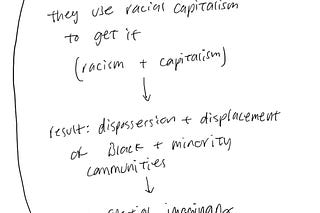 they use racial capitalism
to get it
(racism + capitalism)
↓
result: dispossersion + displacement
of Black + minority
communities
↓